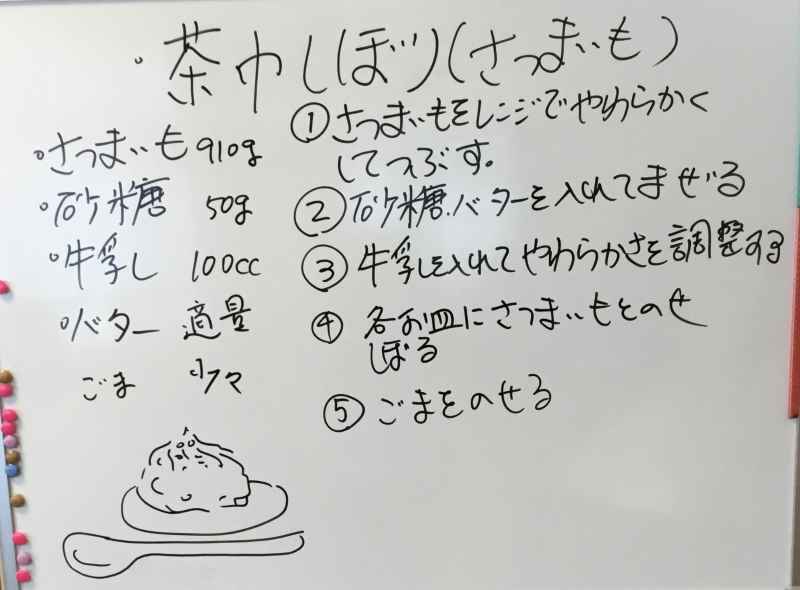 ・茶巾しぼり(さつまいも)
・さつまいも 910g
・砂糖 50g
・牛乳し 100cc
・バター 適量
ごま 少々
①さつまいもをレンジでやわらかく
してつぶす。
②砂糖、バターを入れてまぜる
③牛乳しを入れてやわらかさを調整する
④各お皿にさつまいもをのせ
しぼる
⑤ごまをのせる